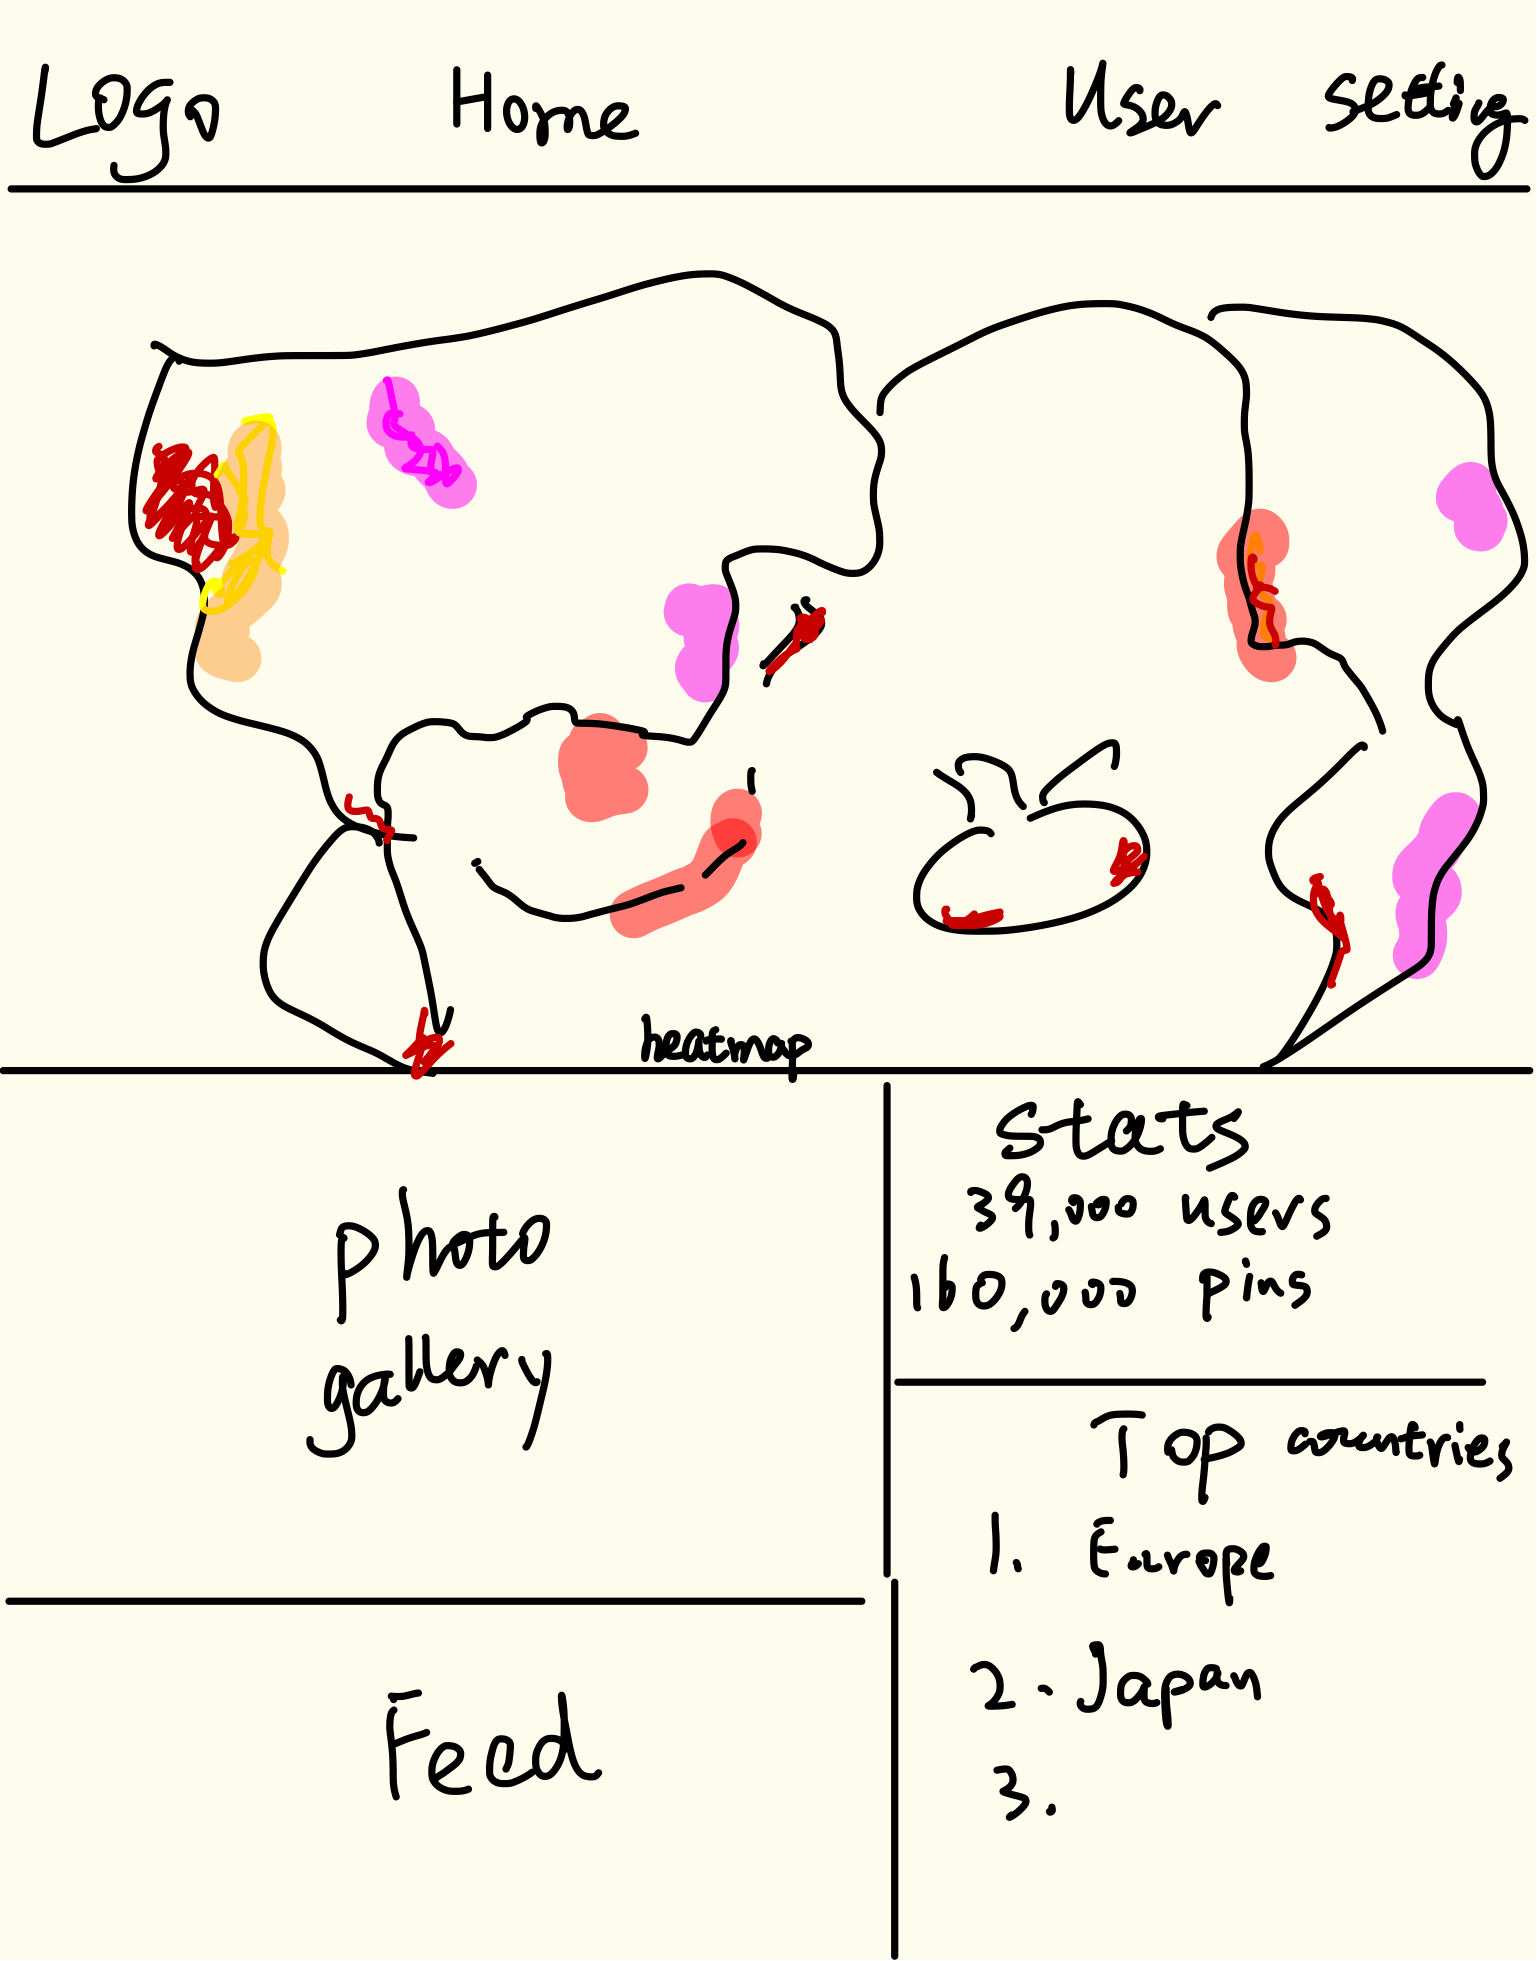 Logo Home User setting
heatmap
photo
gallery
Feed
Stats
39,000 users
160,000 pins
Top countries
1. Europe
2. Japan
3.